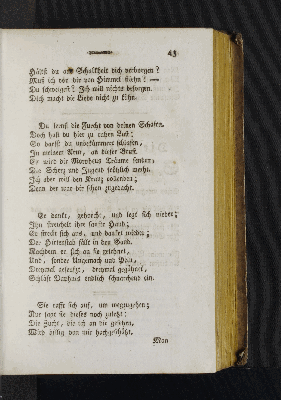 43
Hältst du aus Schalkheit dich verborgen?
Muß ich vor dir gen Himmel flöhn? —
Du schweigest? Ich will nichts besorgen.
Dich macht die Liebe nicht zu kühn.
Du kennst die Zucht von deinen Schafen.
Doch hast du hier zu ruhen Lust;
So darfst du unbekümmert schlafen,
In meinem Arm, an dieser Brust.
Es wird dir Morpheus Träume senden;
Wo Scherz und Jugend fröhlich
Ich aber will den Kranz vollenden;
Denn der war dir schon zugedacht.
Er dankt, gehorcht, und legt sich nieder;
Ihn streichelt ihre sanfte Hand;
Er streckt sich aus, und danket wieder;
Der Hirtenstab fällt in den Sand.
Nachdem er sich an sie gelehnet,
Und, sonder Ungemach und Pein,
Dreymal geseufzt, dreymal gegähnet,
Schläft endlich schnarchend ein.
Sie rafft sich auf, um wegzugehen;
Nur sagt sie dieses noch zuletzt:
Die Zucht, die ich an dir gesehen,
Wird billig von mir hochgeschätzt.
Man